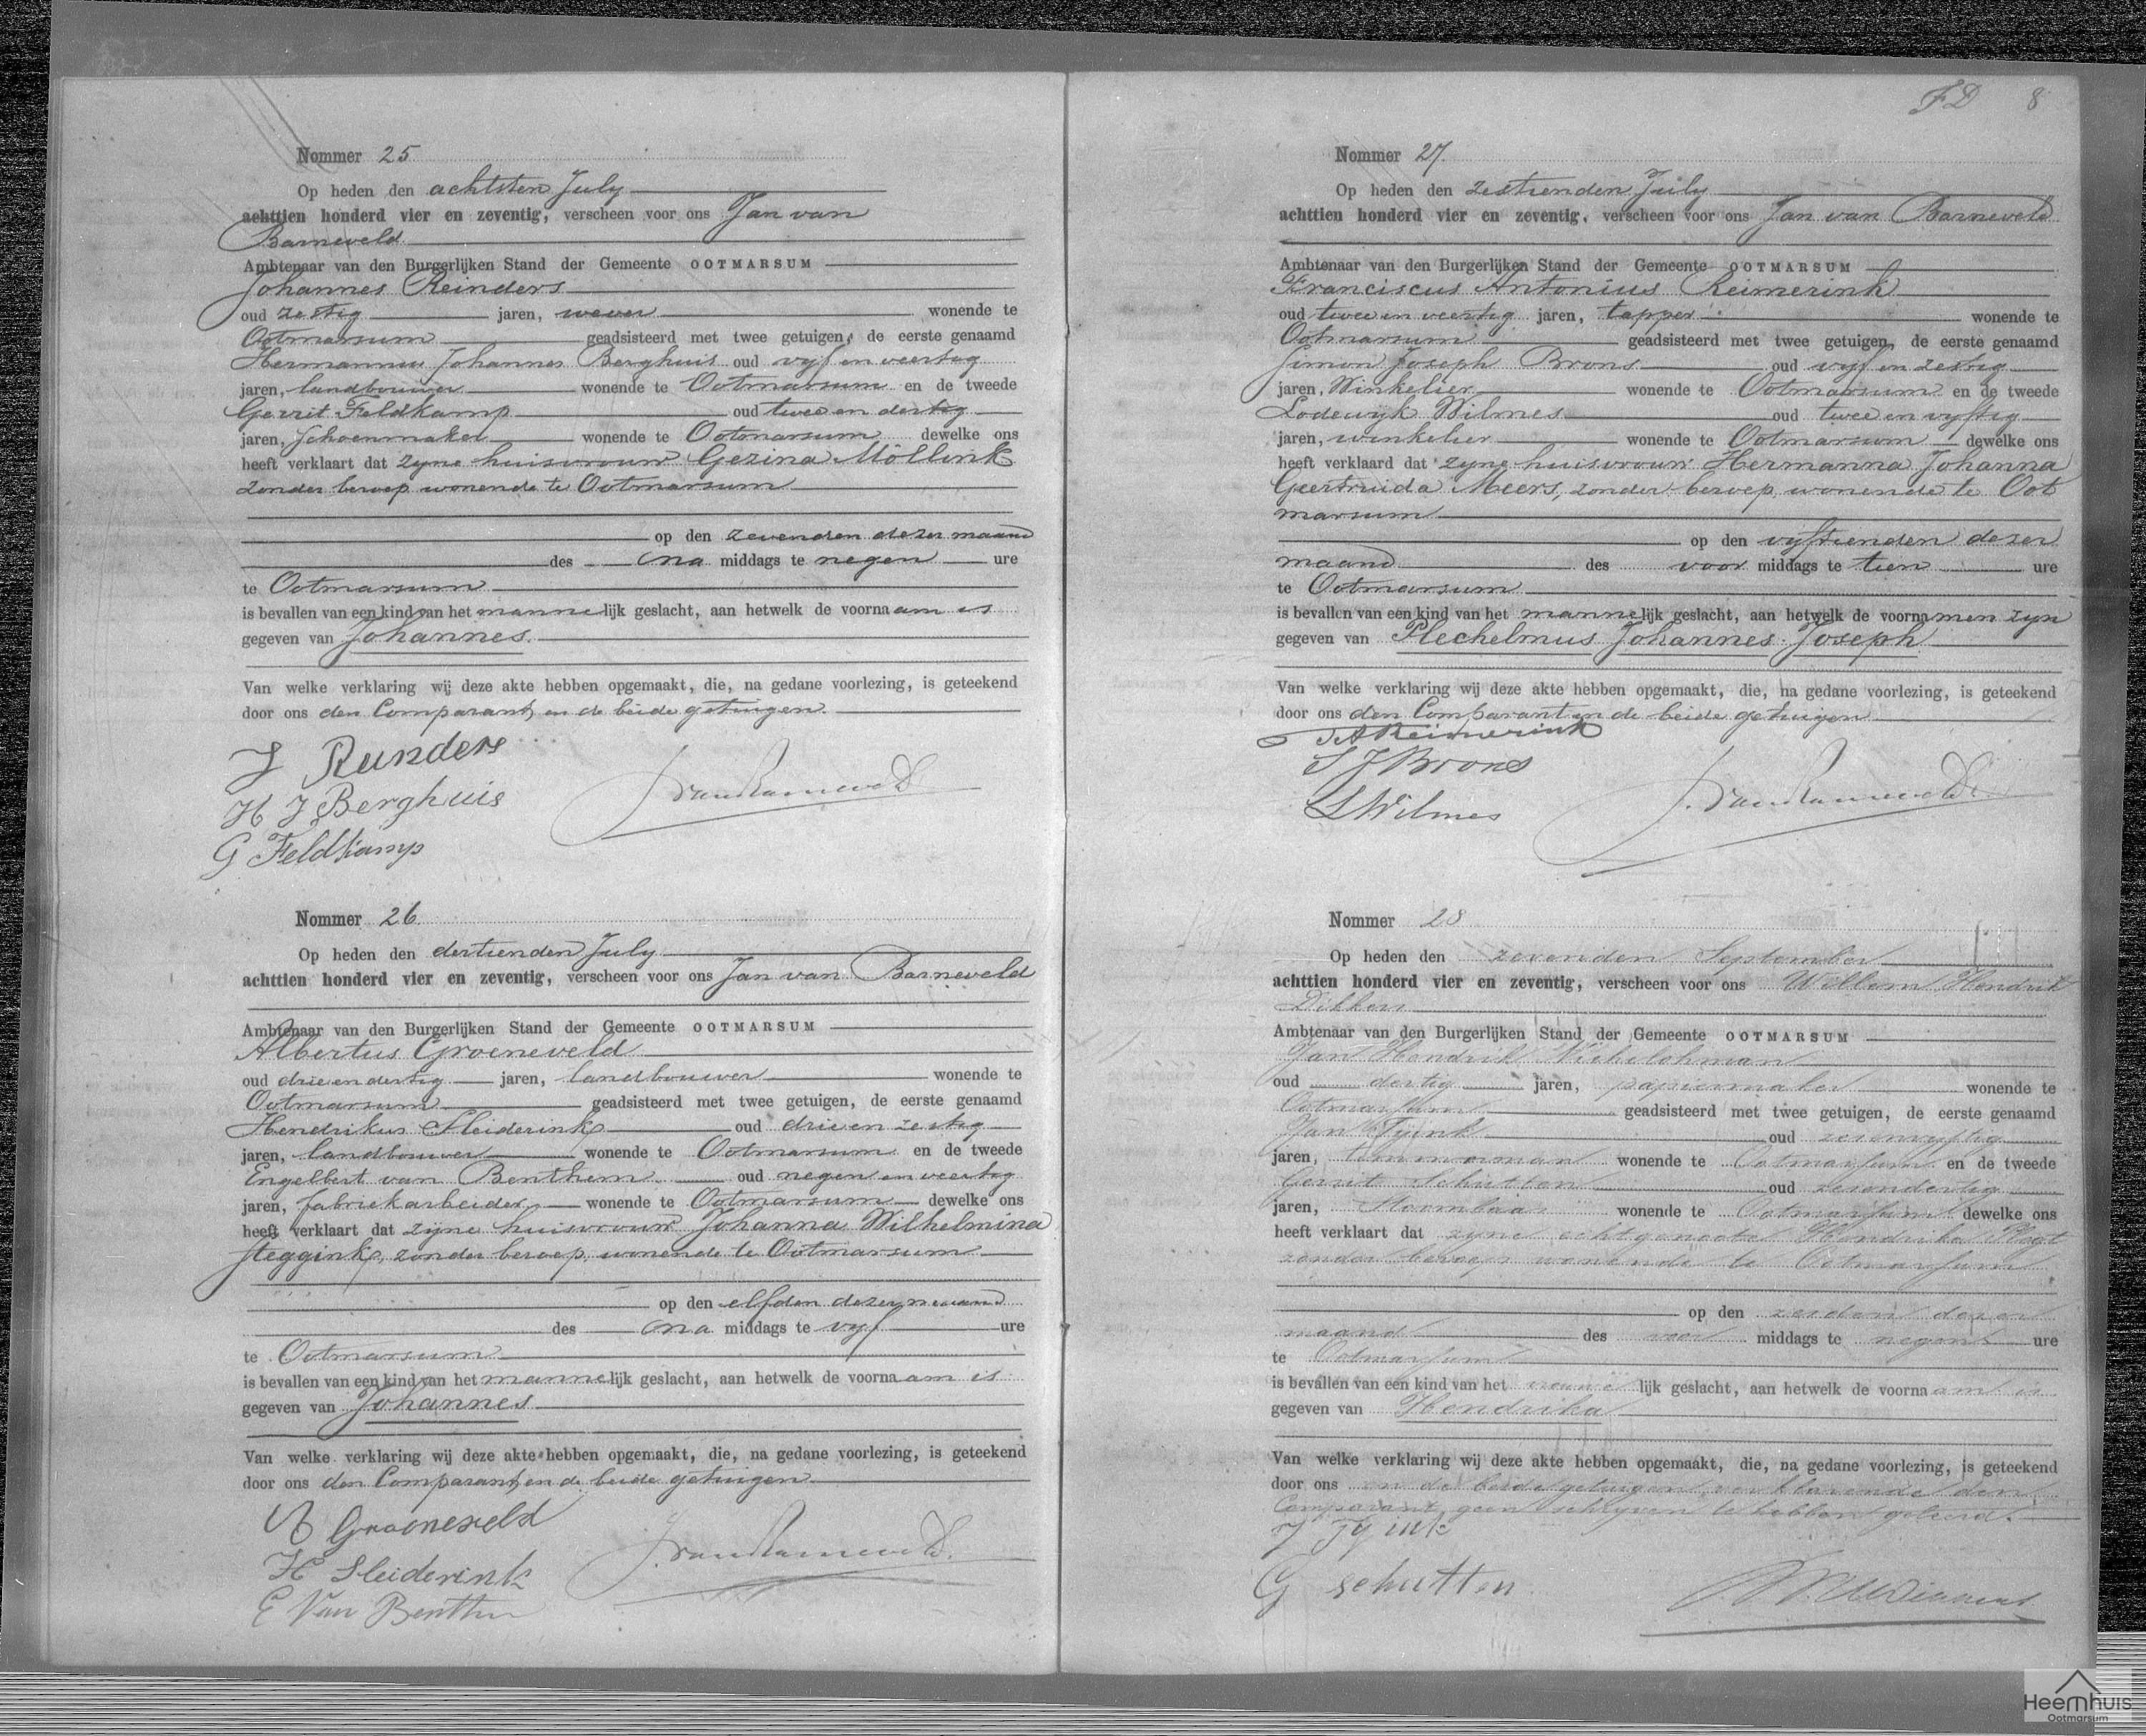 Nommer 25
Op heden den achtsten July
achttien honderd vier en zeventig, verscheen voor ons Jan van
Barneveld
Ambtenaar van den Burgerlijken Stand der Gemeente OOTMARSUM
Johannes Reinders
oud zestig jaren, wever wonende te
Ootmarsum geadsisteerd met twee getuigen, de eerste genaamd
Hermannus Johannes Berghuis oud vyf en veertig
jaren, landbouwer wonende te Ootmarsum en de tweede
Gerrit Feldkamp oud twee en dertig
jaren, schoenmaker wonende te Ootmarsum dewelke ons
heeft verklaart dat zyne huisvrouw Gezina Möllink
zonder beroep wonende te Ootmarsum
op den zevenden dezer maand
des na middags te negen ure
te Ootmarsum
is bevallen van een kind van het mannelijk geslacht, aan hetwelk de voornaam is
gegeven van Johannes.
Van welke verklaring wij deze akte hebben opgemaakt, die, na gedane voorlezing, is geteekend
door ons den Comparant, en de beide getuigen.
J Reinders
H J Berghuis
J van Barneveld
G Feldkamp
Nommer 26.
Op heden den dertienden July
achttien honderd vier en zeventig, verscheen voor ons Jan van Barneveld
Ambtenaar van den Burgerlijken Stand der Gemeente OOTMARSUM
Albertus Groeneveld
oud drie en dertig jaren, landbouwer wonende te
Ootmarsum geadsisteerd met twee getuigen, de eerste genaamd
Hendrikus Sleiderink oud drie en zestig
jaren, landbouwer wonende te Ootmarsum en de tweede
Engelbert van Benthem oud negen en veertig
jaren, fabriekarbeider wonende te Ootmarsum dewelke ons
heeft verklaart dat zijne huisvrouw Johanna Wilhelmina
Steggink, zonder beroep, wonende te Ootmarsum
op den elfden dezer maand
des na middags te vyf ure
te Ootmarsum
is bevallen van een kind van het mannelijk geslacht, aan hetwelk de voornaam is
gegeven van Johannes
Van welke verklaring wij deze akte hebben opgemaakt, die, na gedane voorlezing, is geteekend
door ons den Comparant, en de beide getuigen
A Groeneveld
H Sleiderink
J. van Barneveld.
E Van Benthem
FD 8
Nommer 27.
Op heden den zestienden July
achttien honderd vier en zeventig, verscheen voor ons Jan van Barneveld
Ambtenaar van den Burgerlijken Stand der Gemeente OOTMARSUM
Franciscus Antonius Reimerink
oud twee en veertig jaren, tapper wonende te
Ootmarsum geadsisteerd met twee getuigen, de eerste genaamd
Simon Joseph Brons oud vyf en zestig
jaren, Winkelier wonende te Ootmarsum en de tweede
Lodewijk Wilmes oud twee en vyftig
jaren, winkelier wonende te Ootmarsum dewelke ons
heeft verklaard dat zyne huisvrouw Hermanna Johanna
Geertruida Meers, zonder beroep, wonende te Oot
marsum
op den vyftienden dezer
maand des voor middags te tien ure
te Ootmarsum
is bevallen van een kind van het mannelijk geslacht, aan hetwelk de voornamen zyn
gegeven van Plechelmus Johannes Joseph
Van welke verklaring wij deze akte hebben opgemaakt, die, na gedane voorlezing, is geteekend
door ons den Comparant en de beide getuigen
F A Reimerink
S J Brons
L Wilmes
J. van Barneveld.
Nommer 28
Op heden den zevenden September
achttien honderd vier en zeventig, verscheen voor ons Willem Hendrik
Dikkers
Ambtenaar van den Burgerlijken Stand der Gemeente OOTMARSUM
Jan Hendrik
oud dertig jaren, papiermaker wonende te
Ootmarsum geadsisteerd met twee getuigen, de eerste genaamd
Jan Tijink oud zevenvyftig
jaren, timmerman wonende te Ootmarsum en de tweede
Gerrit Schutten oud zevendertig
jaren, wonende te Ootmarsum dewelke ons
heeft verklaart dat zyne echtgenoote Hendrika Plegt
zonder beroep wonende te Ootmarsum
op den zesden dezer
maand des voor middags te negen ure
te Ootmarsum
is bevallen van een kind van het lijk geslacht, aan hetwelk de voornaam is
gegeven van Hendrika
Van welke verklaring wij deze akte hebben opgemaakt, die, na gedane voorlezing, is geteekend
door ons en de beide getuigen, verklarende den
Comparant geen schryven te hebben geleerd.
J Tyink
G Schutten
Heemhuis
Ootmarsum